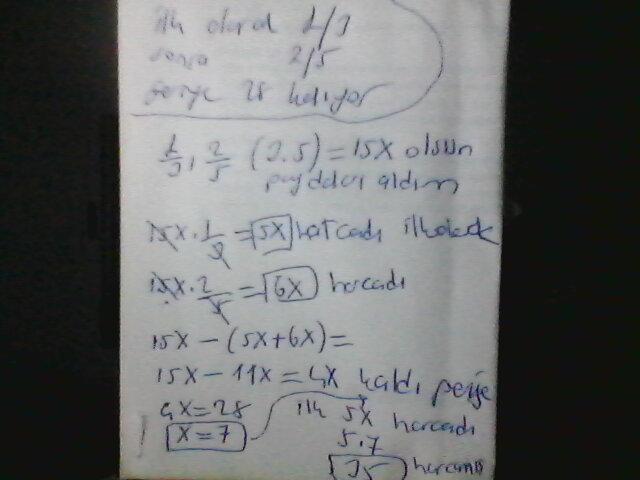 ilk olarak 1/3
sonra 2/5
geriye 28 kalıyor
1/3, 2/5 (3.5) = 15X olsun
paydaları aldım
15X . 1/3 = 5X harcadı ilk olarak
15X . 2/5 = 6X harcadı
15X - (5X+6X) =
15X - 11X = 4X kaldı geriye
4X = 28 ilk 5X harcadı
X = 7 5.7
35 harcamış